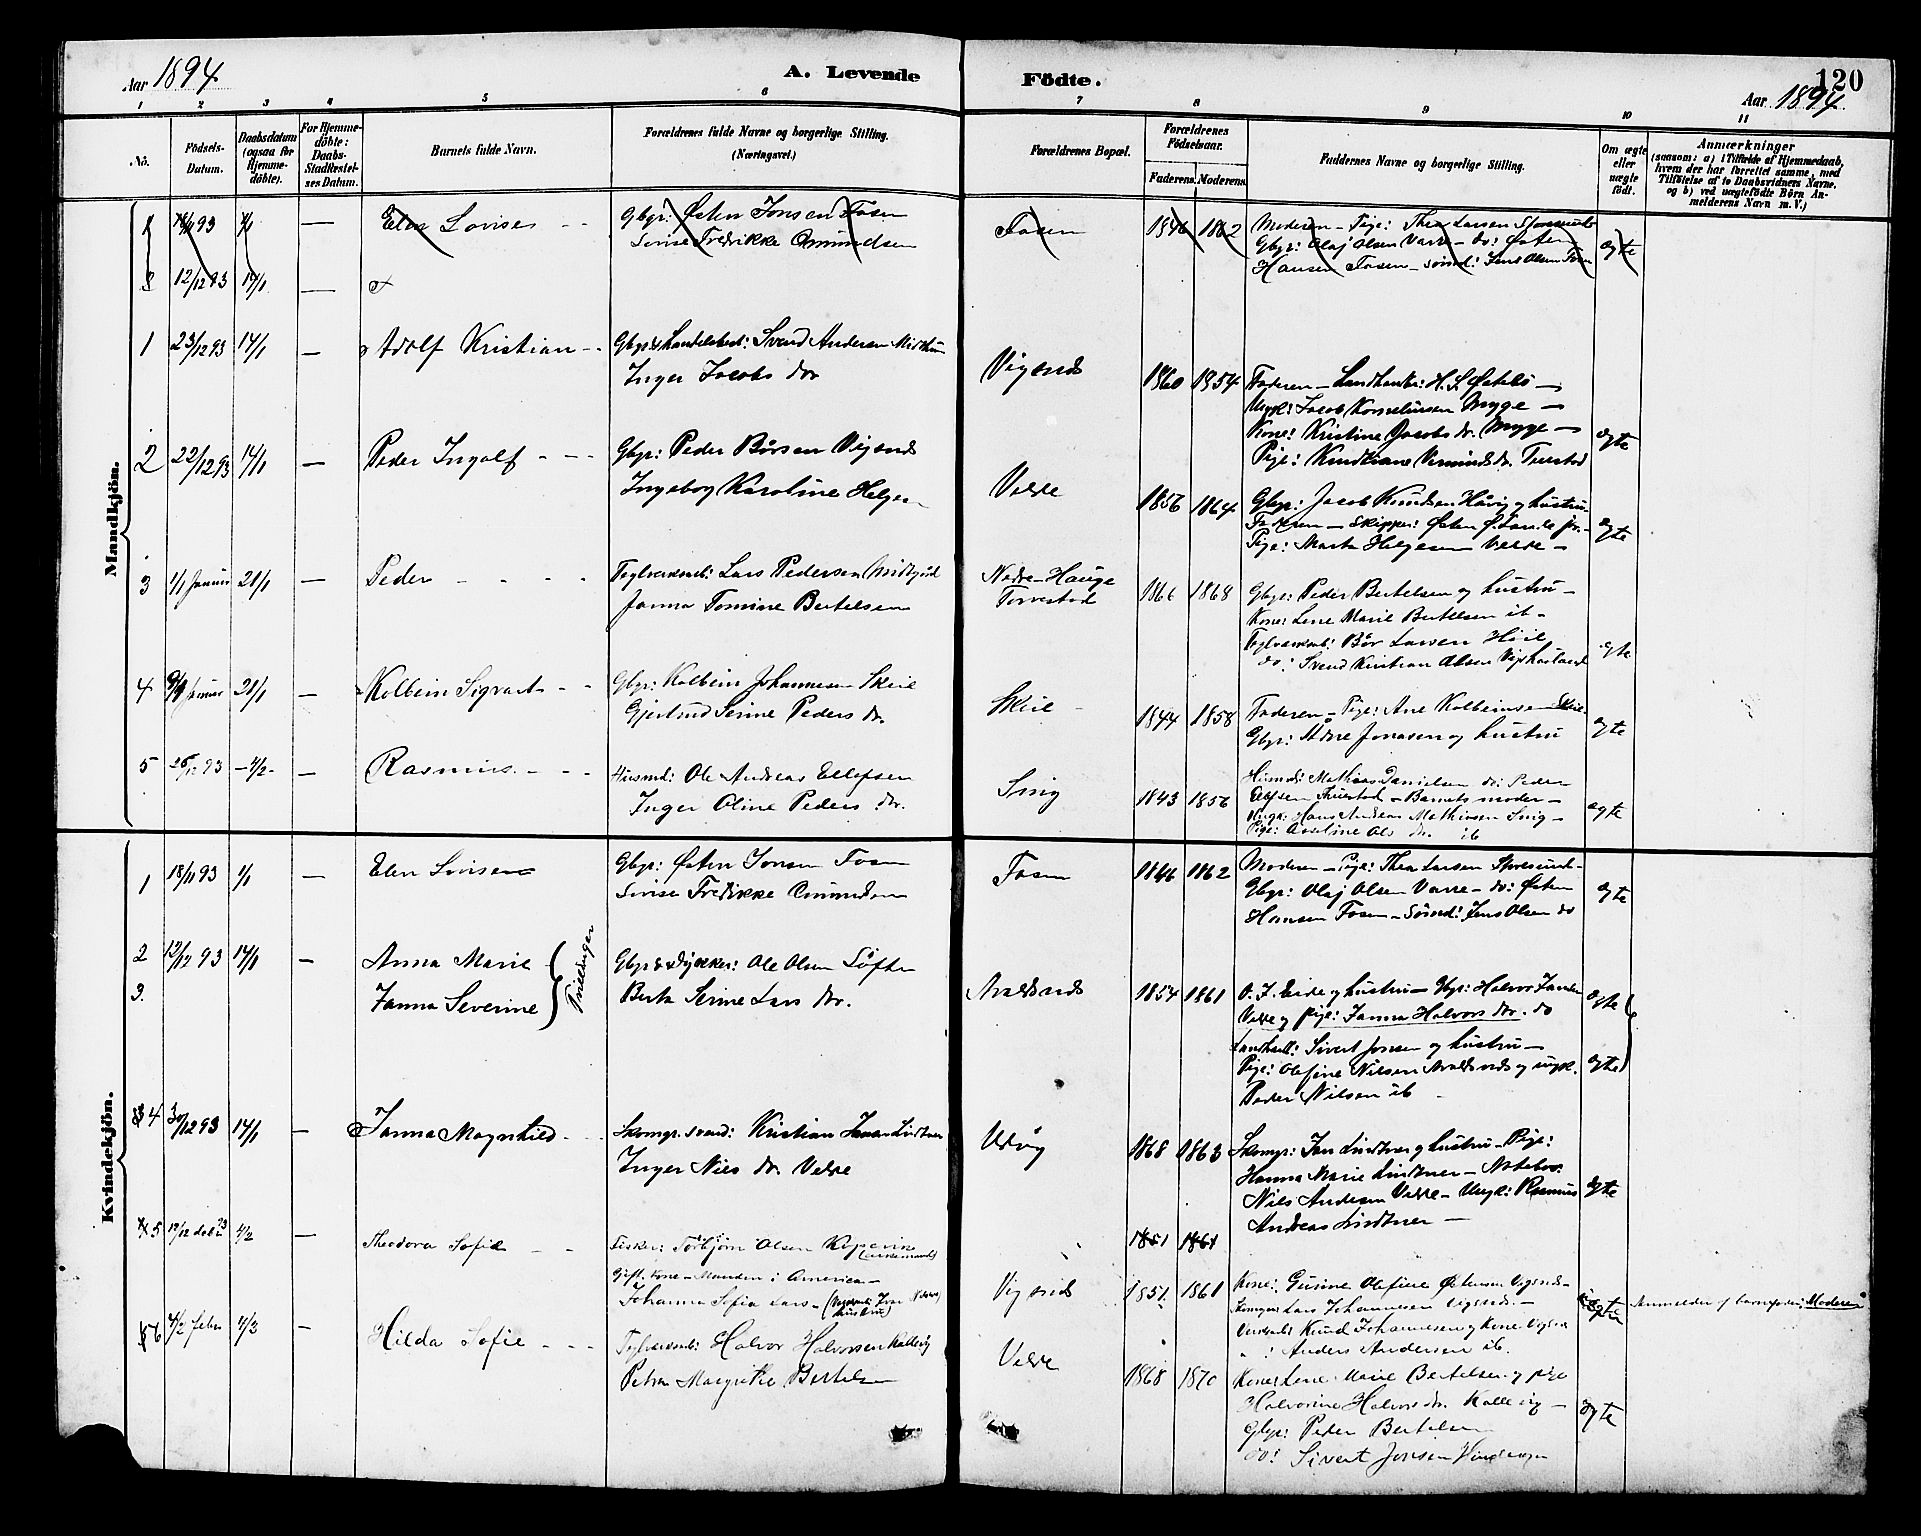 Aar 1894
A. Levende Födte.
120
Aar 1894
1 2 3 4 5 6 7 8 9 10 11
No.
Födsels-Datum.
Daabsdatum (ogsaa for Hjemme-döbte).
For Hjemme-döbte: Daabs-Stadfæstel-ses Datum.
Barnets fulde Navn.
Forældrenes fulde Navne og borgerlige Stilling. (Næringsvei.)
Forældrenes Bopæl.
Forældrenes Födselsaar.
Faderens. Moderens.
Faddernes Navne og borgerlige Stilling.
Om ægte eller uægte födt.
Anmærkninger
(saasom: a) i Tilfælde af Hjemmedaab, hvem der har forrettet samme, med Tilföielse af to Daabsvidners Navne, og b) ved uægtefödte Börn An-melderens Navn m. V.)
Mandkjön.
1 18/11 93 1/1 — Elen Lovise
Gbgr: Østen Jonsen Fosen
Lovise Fredrikke Omundsen
Fosen 1846 1862
Moderen – Pige: Thea Larsen Storesund
Gbgr: Olaj Olsen Varre – do: Østen
Hansen Fosen – sömd: Jens Olsen Fosen
ægte
12/12 93 14/1 —
1 23/12 93 14/1 — Adolf Kristian
Gbgr & Handelsbest: Svend Andersen
Inger Jacobs dtr
Vigsnes 1860 1854
Faderen – Landhandler: H. S. Østebö –
Ungk: Jacob Korneliussen Myge –
Kone: Kristine Jacobs dr. Myge –
Pige:
ægte
2 22/12 93 14/1 — Peder Ingolf
Gbgr: Peder Börsen Vigsnes
Ingeborg Karoline Helgesen
Velde 1856 1864
Gbgr: Jacob Knudsen Håvig og hustru –
Faderen – Skipper: Østen
Pige: Marta Helgesen Velde –
ægte
3 1/1 Januar 21/1 — Peder
Teglværksarb: Lars Pedersen
Janna Tomine Bertelsen
Nedre-Hauge
Torvestad 1866 1868
Gbgr: Peder Bertelsen og hustru –
Kone: Lene Marie Bertelsen ib –
Teglværksarb: Bör Larsen
do: Svend Kristian Olsen
ægte
4 9/1 Januar 21/1 — Kolbein Sigvart
Gbgr: Kolbein Johannesen Skeie
Gjertrud Serine Peders dr.
Skeie 1844 1858
Faderen – Pige: Ane Kolbeinsen Skeie
Gbgr: Jonasen og hustru
ægte
5 25/12 93 4/2 — Rasmus
Husmd: Ole Andreas Ellefsen
Inger Oline Peders dtr.
1843 1856
Husmd: Mathias Danielsen do: Peder
– Barnets moder –
Ungk: Hans Andreas Mathiasen
Pige: Ols dtr. ib
ægte
Kvindekjön.
1 18/11 93 1/1 — Elen Lovise
Gbgr: Østen Jonsen Fosen
Lovise Fredikke Omundsen
Fosen 1846 1862
Moderen – Pige: Thea Larsen Storesund –
Gbgr: Olaj Olsen Varre – do: Østen
Hansen Fosen – Sömd: Jens Olsen do
ægte
2 12/12 93 14/1 — Anna Marie
3. Janna Severine
Tvillinger
Gbgr & Dykker: Ole Olsen Töfte
Berta Serine Lars dtr.
Avaldsnes 1854 1861
og hustru – Gbgr: Halvor Jansen
Velde og pige: Janna Halvors dtr. do
Landhdl: Sivert Jonsen og hustru –
Pige: Olefine Nilsen Avaldsnes og ungk.
Peder Nilsen ib
ægte
ægte
4 30/12 93 14/1 — Janna Magnhild
Skomgr. svend: Kristian Jansen Lindtner
Inger Niels dr. Velde
Utvig 1868 1863
Skomgr: Jan Lindtner og hustru – Pige:
Hanna Marie Lindtner –
Nils Andersen Velde – Ungk: Rasmus
Andreas Lindtner –
ægte
1851 1861
5 4/2 — Theodora Sofie
Fisker: Torbjörn Olsen Kopervik
Gift. Kone – Manden i America –
Johanna Sofia Lars –
Vigsnes 1851 1861
Kone: Gurine Olefine Østensen Vigsnes –
Skomgr: Lars Johannesen Vigsnes –
Knud Johannesen og Kone Vigsnes
" : Anders Andersen ib.
uægte
Anmelder af barnefader: Moderen
6 4/2 Febr 4/3 — Hilda Sofie
Teglværksarb: Halvor Halvorsen Kallevig
Petra Margrethe Bertelsen
Velde 1868 1870
Kone: Lene Marie Bertelsen og pige
Halvorine Halvors dr. Kallevig –
Gbgr: Peder Bertelsen
do: Sivert Jonsen
ægte